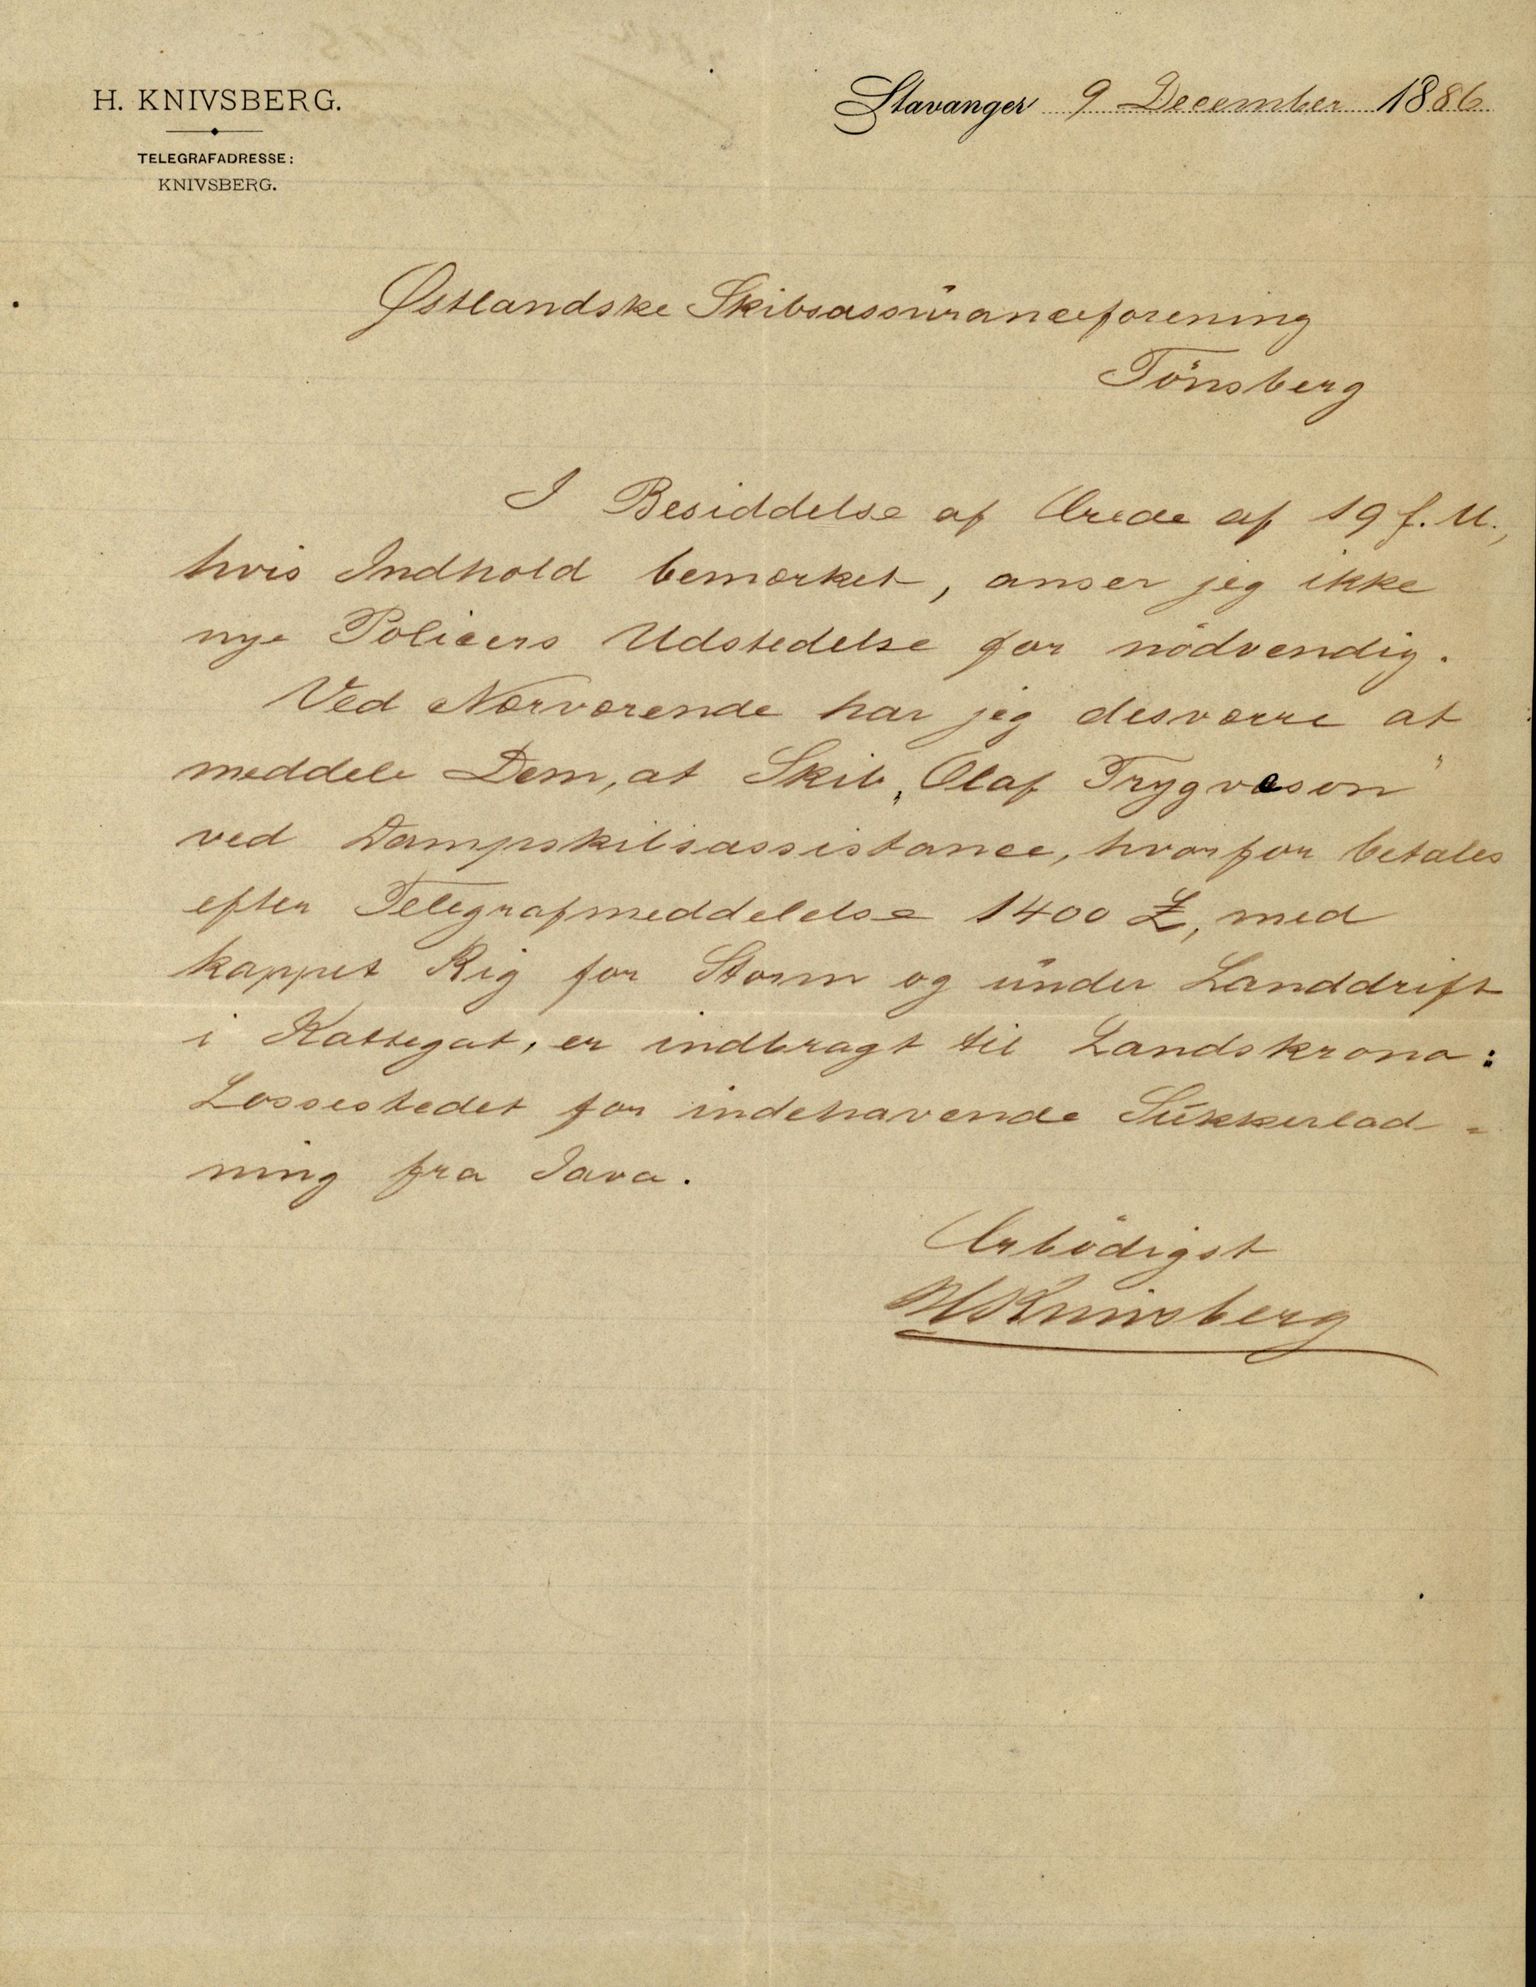 H. KNIVSBERG.
TELEGRAFADRESSE:
KNIVSBERG.
Stavanger 9 December 1886
Østlandske Skibsassuranceforening
Tönsberg
I Besiddelse af Ærede af 19 f. M.,
hvis Indhold bemærket, anser jeg ikke
nye Policers Udstedelse for nödvendig.
Ved Nærværende har jeg desværre at
meddele Dem, at Skib „Olaf Trygvason"
ved Dampskibsassistance, hvorfor betales
efter Telegrafmeddelelse 1400 £, med
kappet Rig for Storm og under Landdrift
i Kattegat, er indbragt til Landskrona:
Lossestedet for indehavende Sukkerlad=
ning fra Java.
Ærbödigst
H Knivsberg